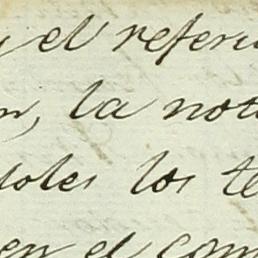 y el referi
n, la not
doles los te
en el com